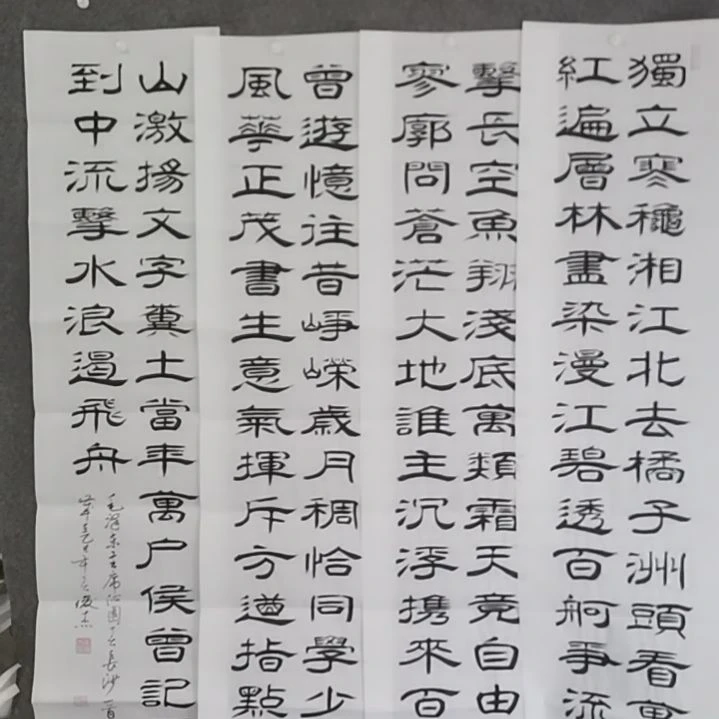 獨立寒穐湘江北去橘子洲頭看萬
紅遍層林盡染漫江碧透百舸爭流
擊長空魚翔淺底萬類霜天竟自由
寥廓問蒼茫大地誰主沉浮携來百
曾遊憶往昔崢嶸歲月稠恰同學少
風華正茂書生意氣揮斥方遒指點
山激揚文字糞土當年萬户侯曾記
到中流擊水浪遏飛舟
毛澤東主席沁園春長沙